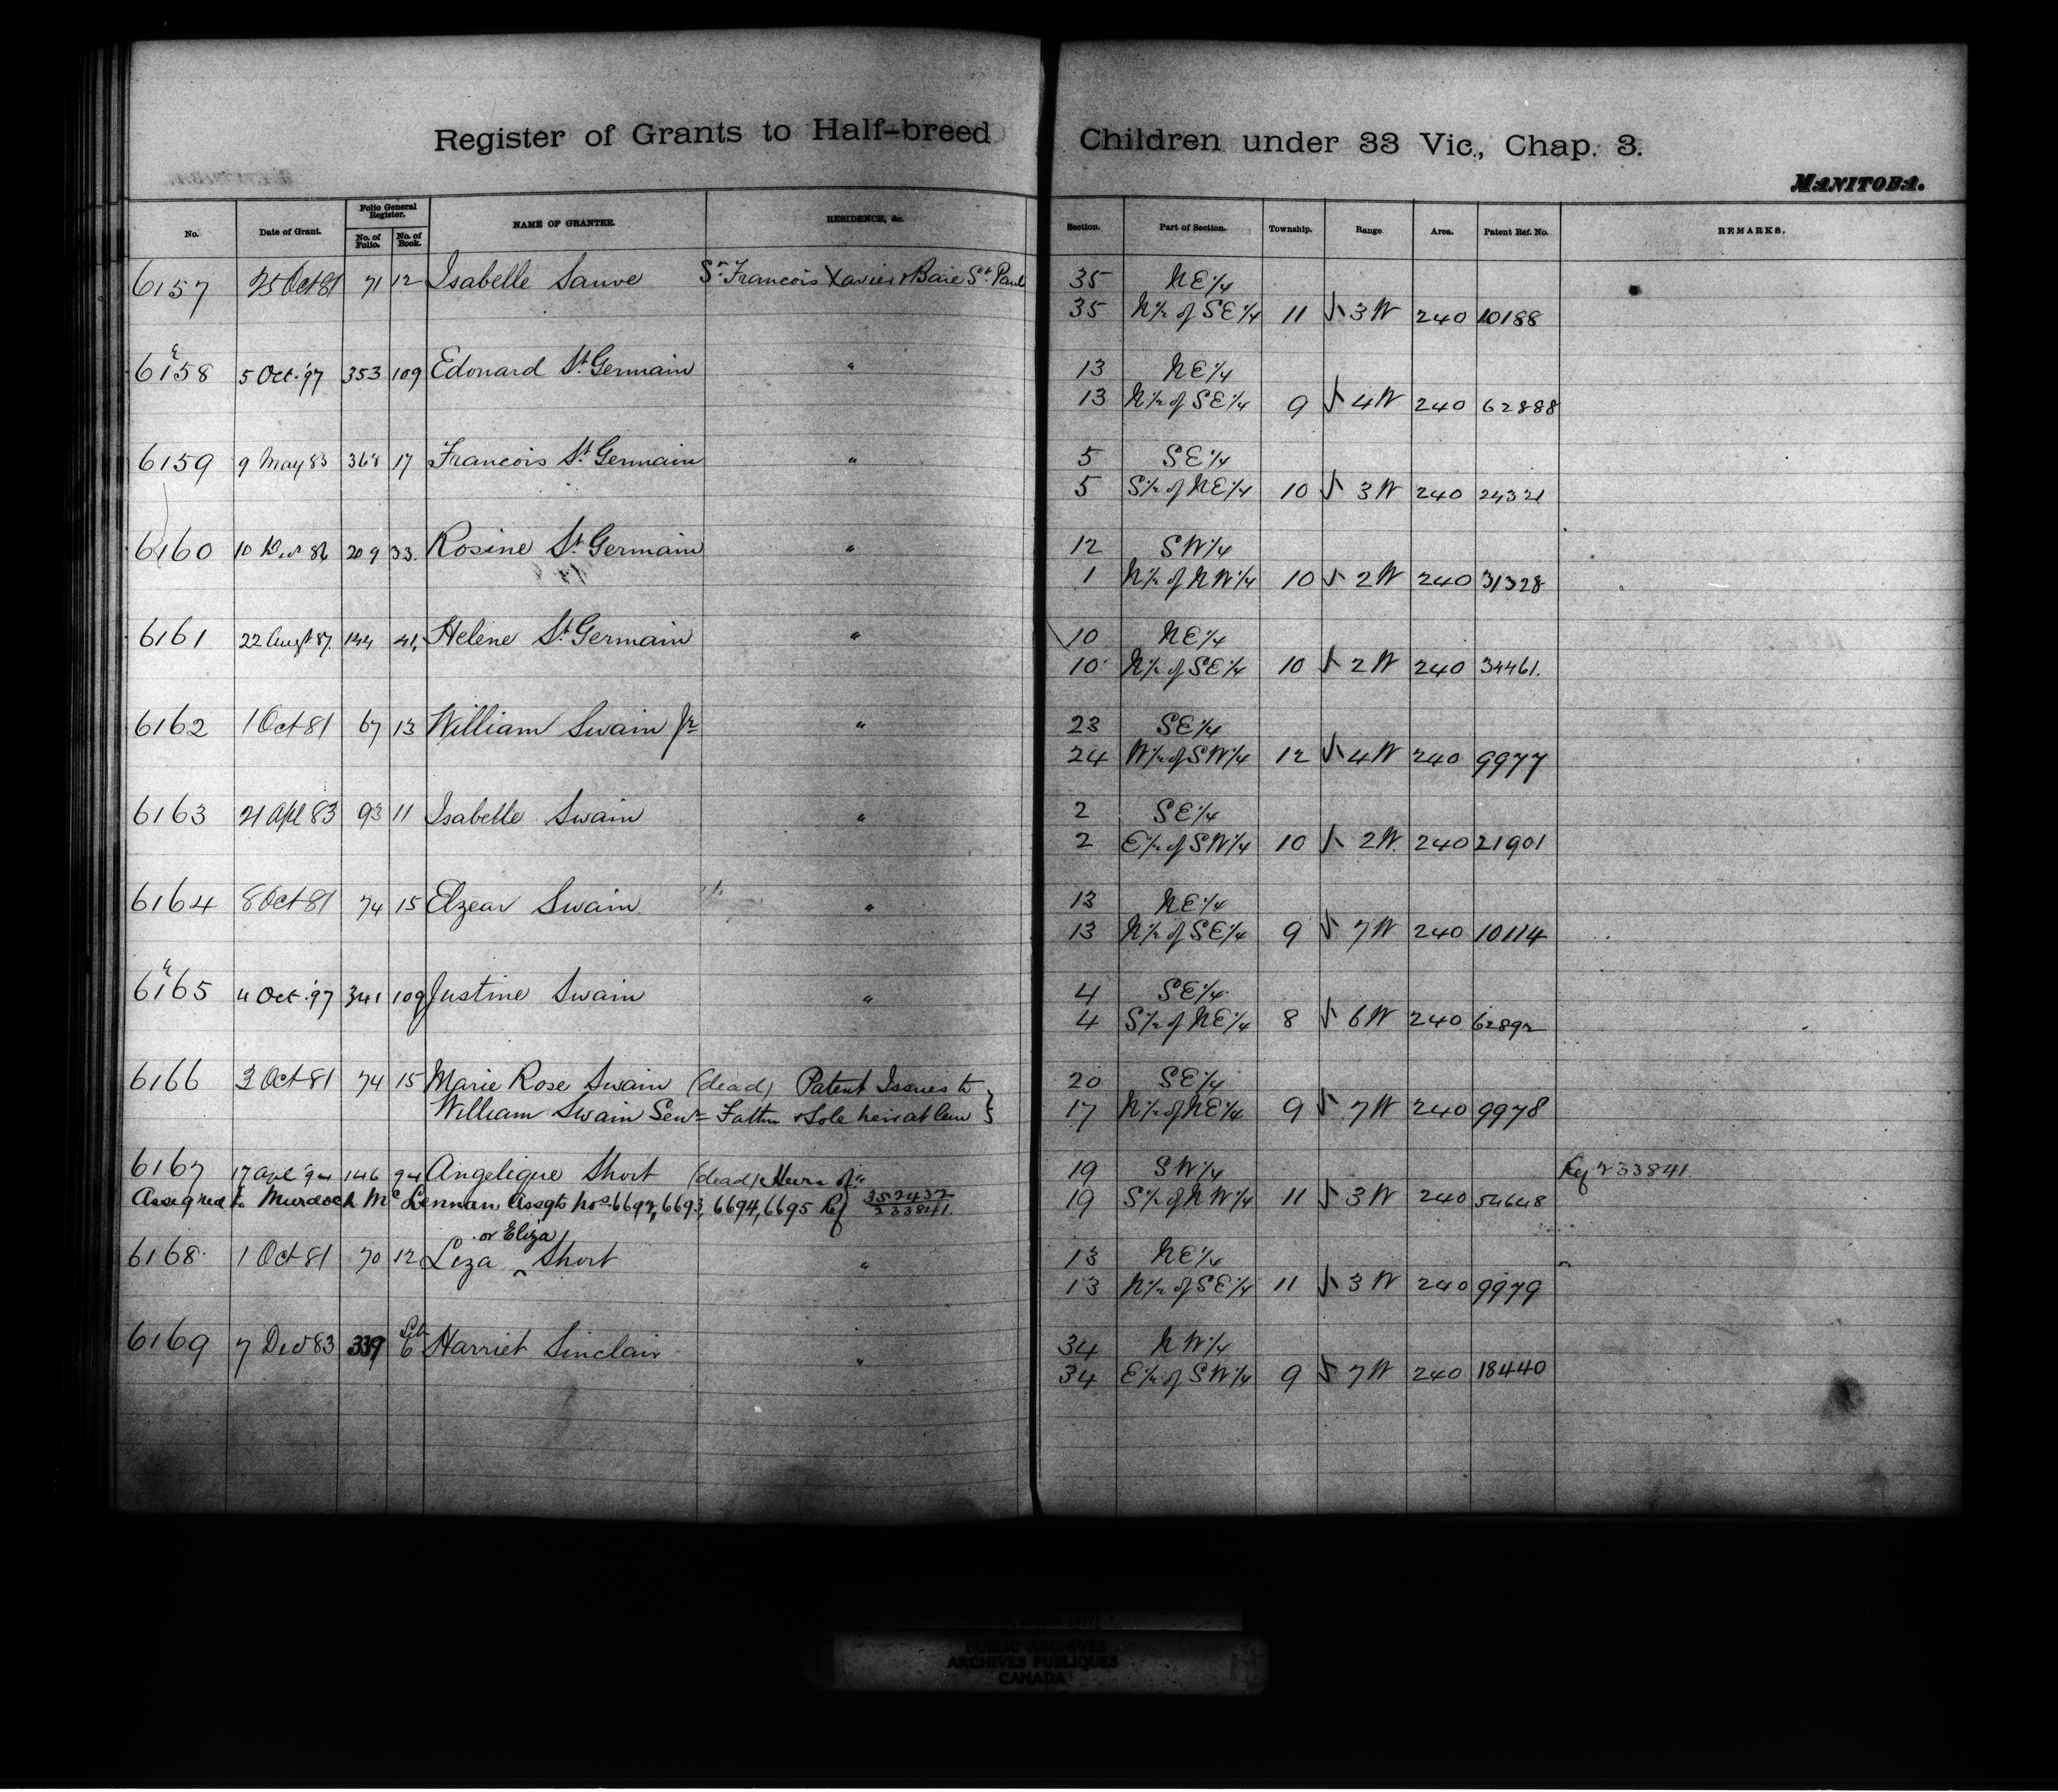 Register of Grants to Half-breed Children under 33 Vic., Chap. 3.
MANITOBA.
No. Date of Grant. Folio General Register. No. of Folio. No. of Book. NAME OF GRANTEE. RESIDENCE, &c. Section. Part of Section. Township. Range Area. Patent Ref. No. REMARKS.
6157 25 Oct 81 71 12 Isabelle Sauve St. Francois Xavier & Baie St. Paul 35 NE 1/4
35 N 1/2 of SE 1/4 11 3 W 240 10188
6158 5 Oct. '97 353 109 Edouard St. Germain " 13 NE 1/4
13 N 1/2 of SE 1/4 9 4 W 240 62888
6159 9 May 83 368 17 Francois St. Germain " 5 SE 1/4
5 S 1/2 of NE 1/4 10 3 W 240 24321
6160 10 Dec 86 209 33. Rosine St. Germain " 12 SW 1/4
1 N 1/2 of NW 1/4 10 2 W 240 31328
6161 22 Augt 87. 144 41, Helene St. Germain " 10 NE 1/4
10 N 1/2 of SE 1/4 10 2 W 240 34461.
6162 1 Oct 81 67 13 William Swain Jr " 23 SE 1/4
24 W 1/2 of SW 1/4 12 4 W 240 9977
6163 21 Apl 83 93 11 Isabelle Swain " 2 SE 1/4
2 E 1/2 of SW 1/4 10 2 W. 240 21901
6164 8 Oct 81 74 15 Elzear Swain " 13 NE 1/4
13 N 1/2 of SE 1/4 9 7 W 240 10114
6165 4 Oct. '97 341 109 Justine Swain " 4 SE 1/4
4 S 1/2 of NE 1/4 8 6 W 240 62892
6166 3 Oct 81 74 15 Marie Rose Swain (dead) Patent Issues to 20 SE 1/4
William Swain Senr Father & Sole heir at law 17 N 1/2 of NE 1/4 9 7 W 240 9978
6167 17 Apl '94 146 94 Angelique Short (dead) Heirs of " 19 SW 1/4 Ref 233841.
Assigned to Murdoch McLennan Assgts Nos. 6692, 6693, 6694, 6695 Ref 352432 233841. 19 S 1/2 of NW 1/4 11 3 W 240 54648
or Eliza
6168 1 Oct 81 70 12 Liza ^ Short " 13 NE 1/4
13 N 1/2 of SE 1/4 11 3 W 240 9979
6169 7 Dec 83 339 6 Harriet Sinclair " 34 NW 1/4
34 E 1/2 of SW 1/4 9 7 W 240 18440
PUBLIC ARCHIVES
ARCHIVES PUBLIQUES
CANADA